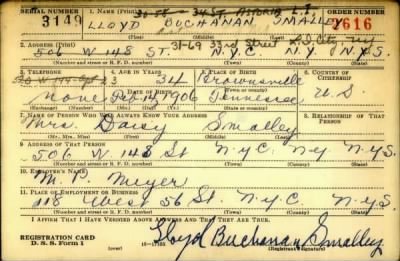 SERIAL NUMBER 1. NAME (Print) ORDER NUMBER
3149 LLOYD BUCHANAN SMALLEY 7616
(First) (Middle) (Last)
31-69 33rd Street
2. ADDRESS (Print)
506 W 148 ST. N.Y.C. N.Y. N.Y.S.
(Number and street or R. F. D. number) (Town) (County) (State)
3. TELEPHONE 4. AGE IN YEARS 5. PLACE OF BIRTH 6. COUNTRY OF CITIZENSHIP
34 Brownsville
none DATE OF BIRTH Feb 1906 Tennessee U.S.
(Exchange) (Number) (Mo.) (Day) (Yr.) (State or country)
7. NAME OF PERSON WHO WILL ALWAYS KNOW YOUR ADDRESS 8. RELATIONSHIP OF THAT PERSON
Mrs. Daisy Smalley
(Mr., Mrs., Miss) (First) (Middle) (Last)
9. ADDRESS OF THAT PERSON
506 W 148 St N.Y.C. N.Y. N.Y.S.
(Number and street or R. F. D. number) (Town) (County) (State)
10. EMPLOYER'S NAME
Meyer
11. PLACE OF EMPLOYMENT OR BUSINESS
118 West 56 St. N.Y.C. N.Y.S.
(Number and street or R. F. D. number) (Town) (County) (State)
I AFFIRM THAT I HAVE VERIFIED ABOVE ANSWERS AND THAT THEY ARE TRUE.
REGISTRATION CARD
D. S. S. Form 1 Lloyd Buchanan Smalley
(Registrant's signature)